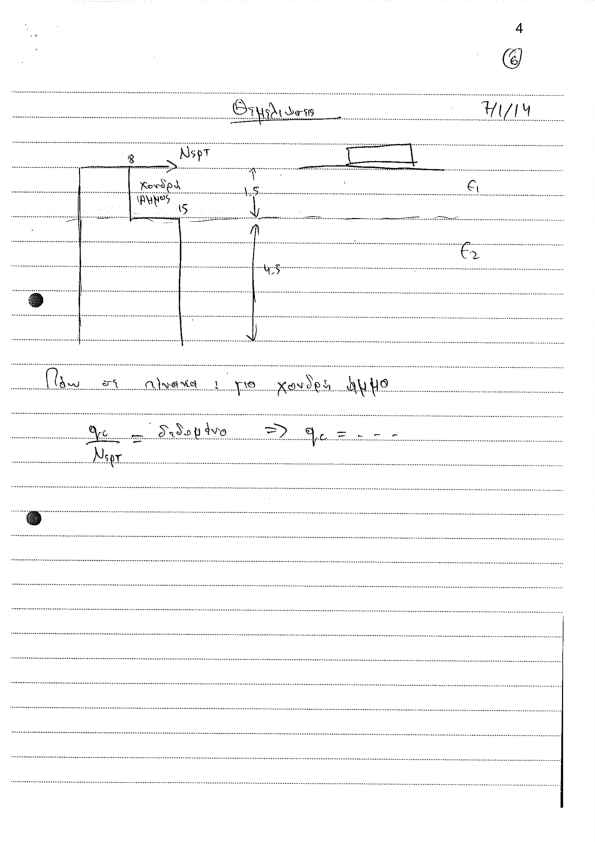 4
6
Θεμελιώσεις 7/1/14
8 NSPT
χονδρή
άμμος
15
1.5
E1
E2
4.5
Πάω σε πίνακα : για χονδρή άμμο
qc/NSPT = δεδομένο => qc = - - -